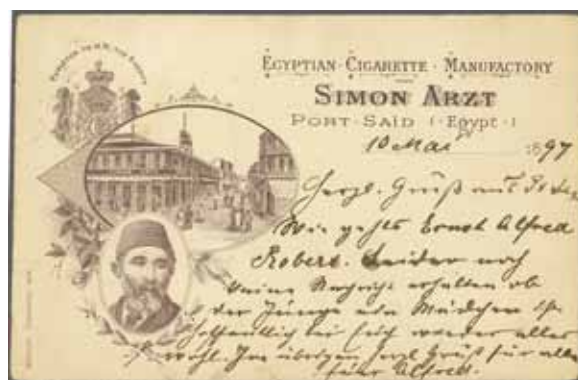 EGYPTIAN · CIGARETTE · MANUFACTORY
SIMON ARZT
PORT-SAÏD (Egypt)
10 Mai 1897
Herzl. Gruß aus
Wie gehts Ernst Alfred
Robert. Leider noch
keine Nachricht erhalten ob
der Junge ein Mädchen ist
Hoffentlich bei Euch wieder alles
wohl. Im übrigen herzl. Gruß für alle
Alfred.